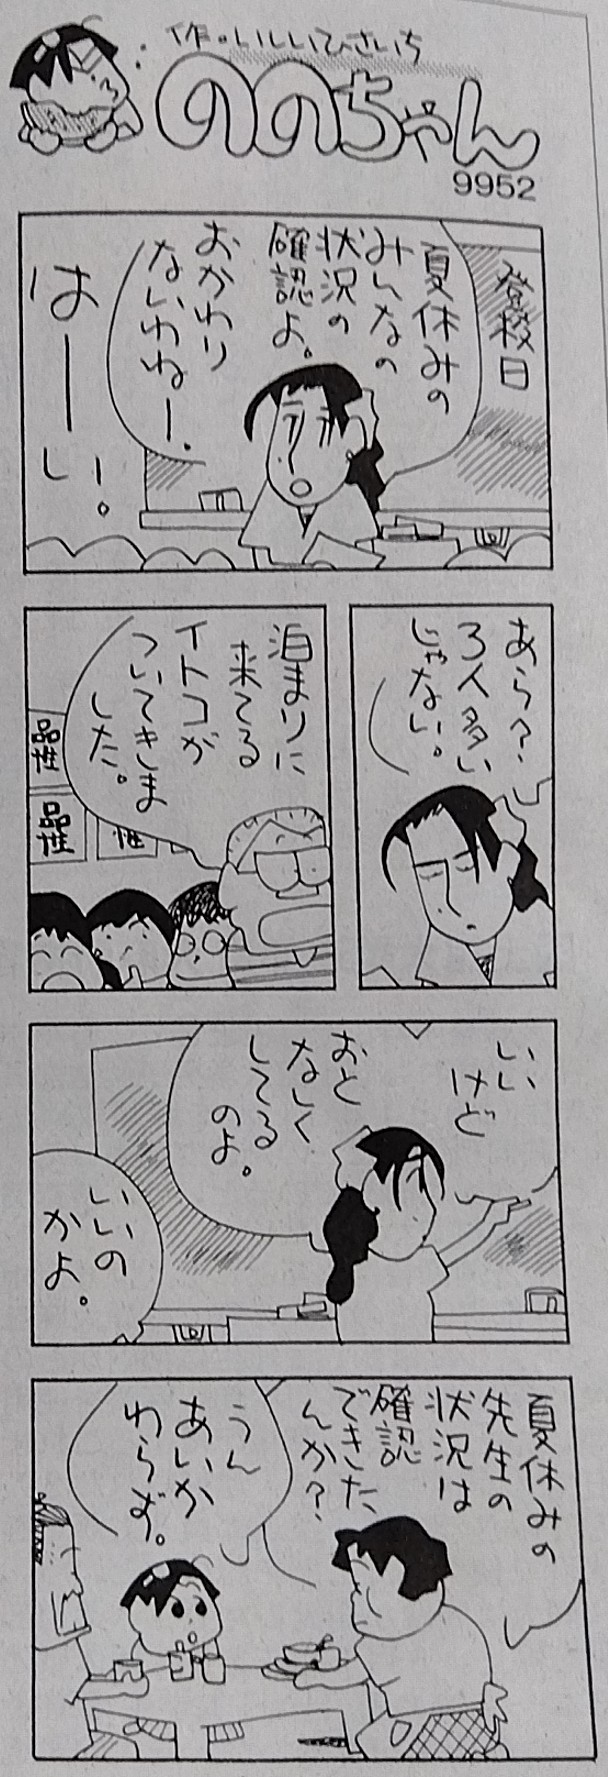 作・いしいひさいち
ののちゃん
9952
登校日
夏休みの
みんなの
状況の
確認よ。
おかわり
ないわねー。
はーーい。
あら?
3人多い
じゃない。
泊まりに
来てる
イトコが
ついてきま
した。
品性
品性
性
いい
けど
おと
なしく
してる
のよ。
いいの
かよ。
夏休みの
先生の
状況は
確認
できた
んか?
うん
あいか
わらず。